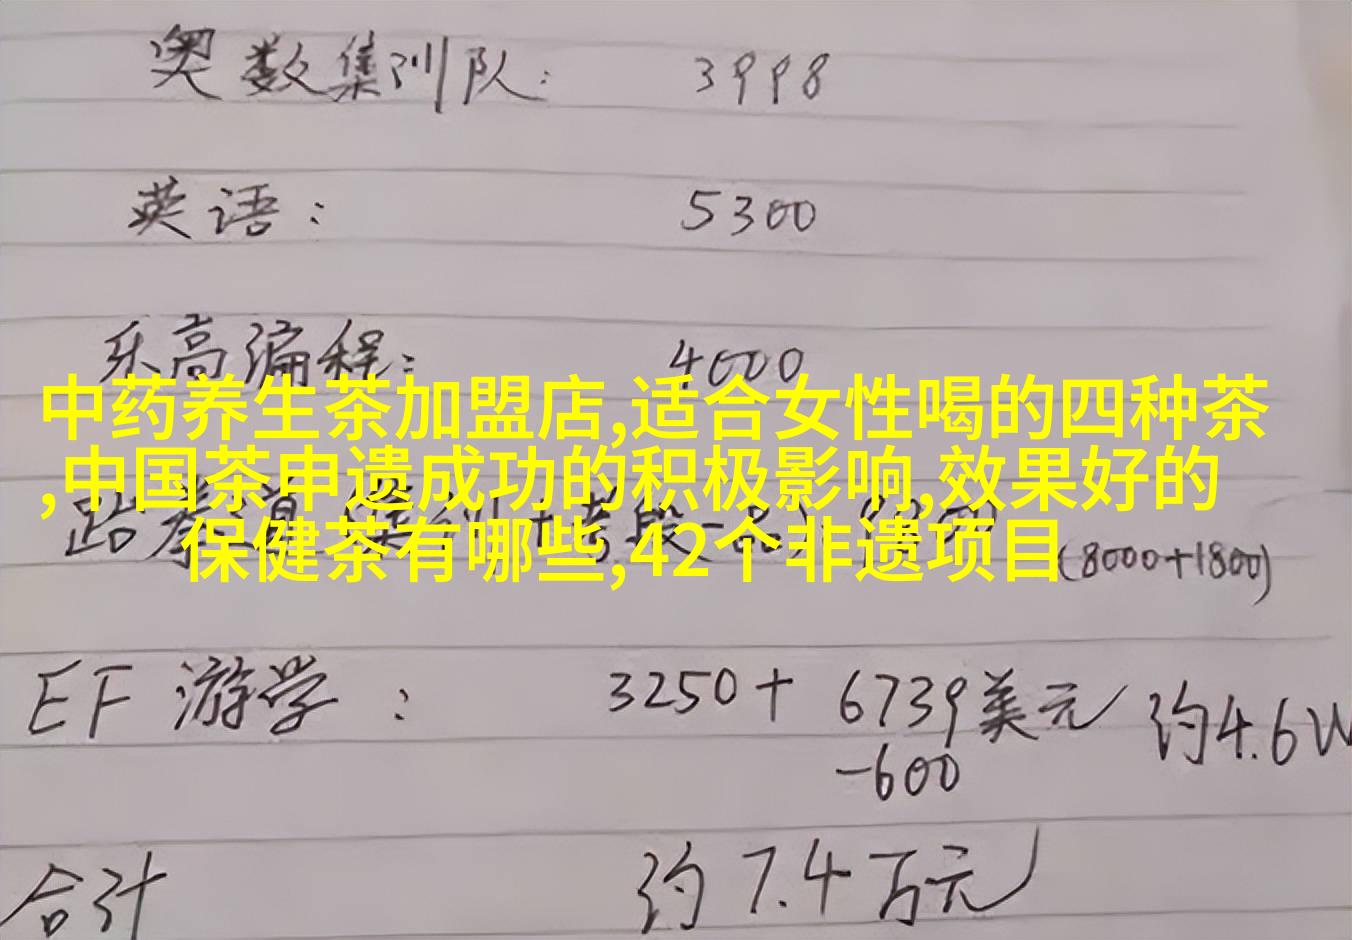 奥数集训队: 3998
英语: 5300
乐高编程: 4000
中药养生茶加盟店,适合女性喝的四种茶
,中国茶申遗成功的积极影响,效果好的
保健茶有哪些,42个非遗项目
(8000+1800)
EF 游学: 3250+ 6739美元 约4.6W
-600
合计 约7.4万元